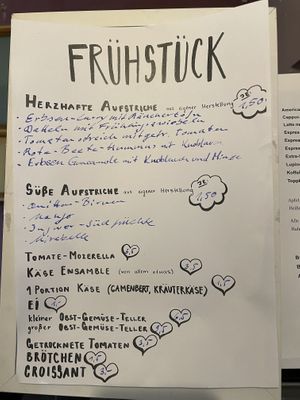 FRÜHSTÜCK
HERZHAFTE AUFSTRICHE aus eigener Herstellung JE 1,50
- Erbsen-Curry mit
- mit Frühlingszwiebeln
- Tomatenstreich mit getr. Tomaten
- Rote-Beete-Hummus mit Knoblauch
- Erbsen Guacamole mit Knoblauch und Minze
SÜSSE AUFSTRICHE aus eigener Herstellung JE 1,50
- Birnen
- Mango
- Ingwer-Südfrüchte
- Mirabelle
TOMATE-MOZERELLA 3,5
KÄSE ENSAMBLE (von allem etwas) 3,5
1 PORTION KÄSE (CAMENBERT, KRÄUTERKÄSE) 1,5
EI
kleiner OBST-GEMÜSE-TELLER 1,5
großer OBST-GEMÜSE-TELLER
GETROCKNETE TOMATEN 3,5
BRÖTCHEN 1,5
CROISSANT 3,-